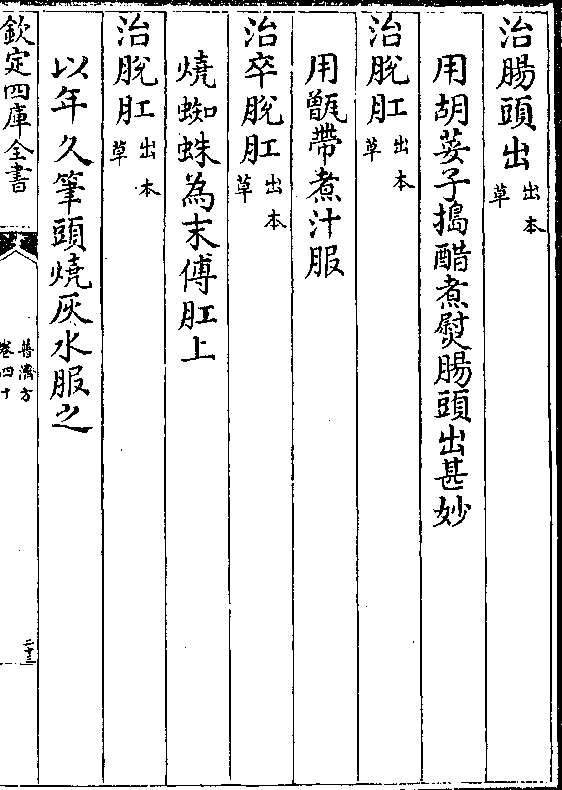 治腸頭出出本草
用胡荽子搗醋煮熨腸頭出甚妙
治脫肛出本草
用甑帶煮汁服
治卒脫肛出本草
燒蜘蛛為末傅肛上
治脫肛出本草
以年久筆頭燒灰水服之
欽定四庫全書
普濟方
卷四十
二十三